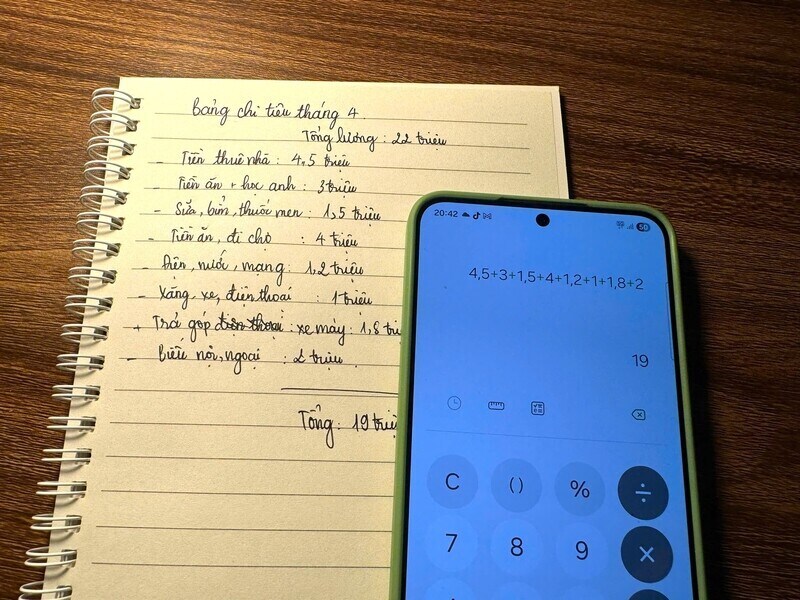 Bảng chi tiêu tháng 4.
Tổng lương : 22 triệu
- Tiền thuê nhà : 4,5 triệu
- Tiền ăn + học anh : 3 triệu
- Sữa, bỉm, thuốc men : 1,5 triệu
- Tiền ăn, đi chợ : 4 triệu
- Điện, nước, mạng : 1,2 triệu
- Xăng, xe, điện thoại : 1 triệu
+ Trả góp điện thoại : xe máy : 1,8 triệ
- Biếu nội, ngoại : 2 triệu
Tổng : 19 triệ
20:42
50
4,5+3+1,5+4+1,2+1+1,8+2
19
C () % ÷
7 8 9 ×